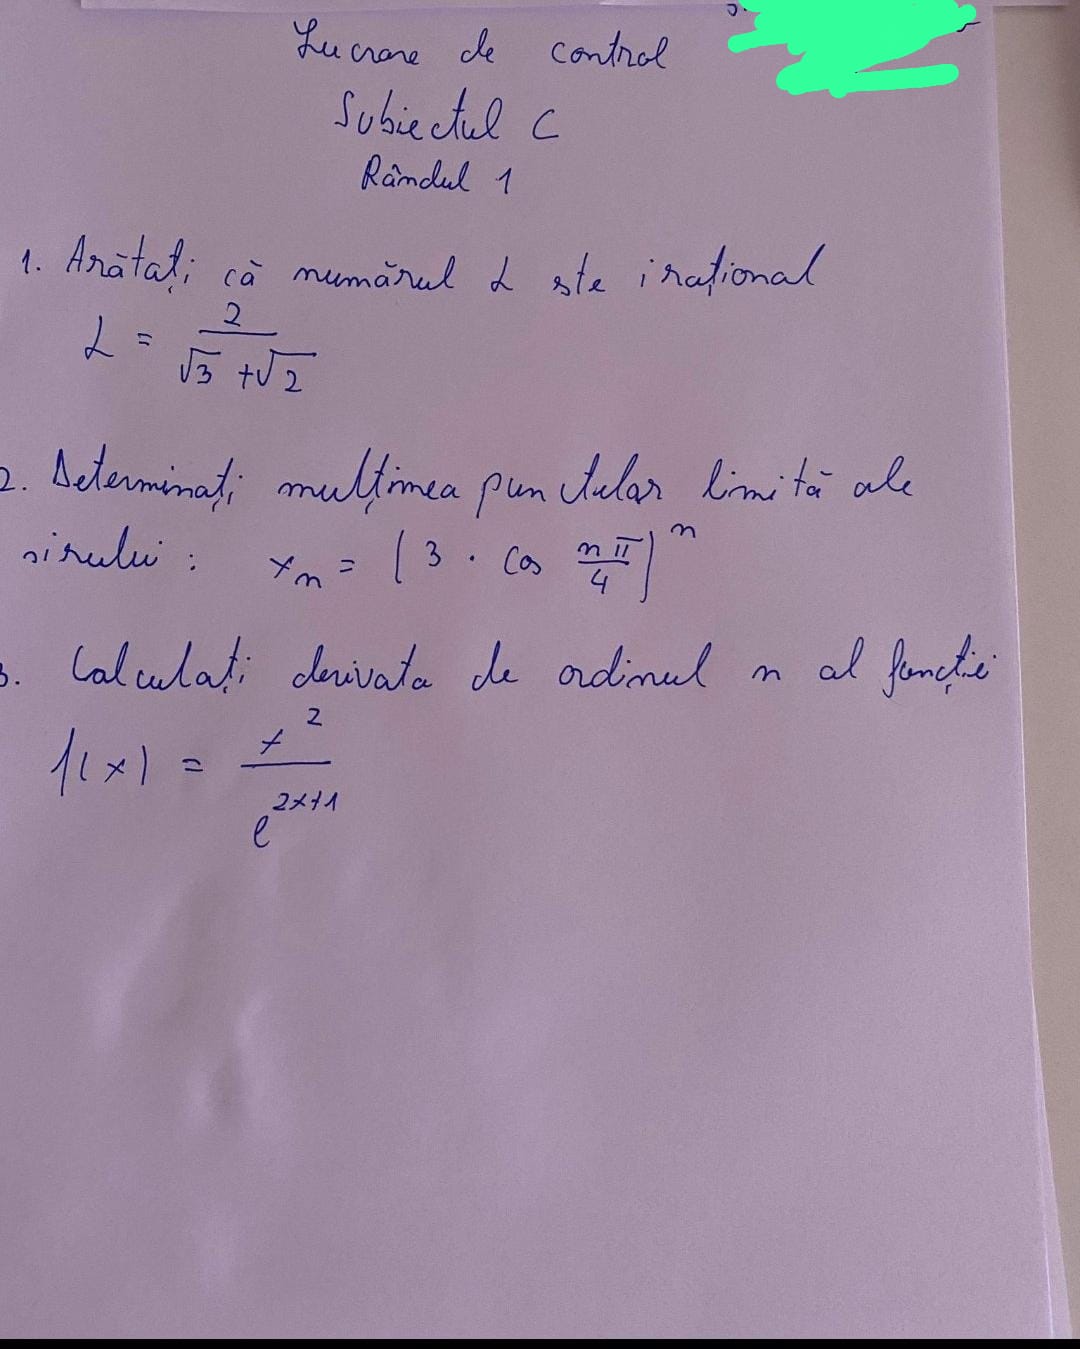 Lucrare de control
Subiectul C
Rândul 1
1. Arătați că numărul α este irațional
α = 2 / (√3 + √2)
2. Determinați mulțimea punctelor limită ale
șirului : xₙ = (3 · cos nπ/4)ⁿ
3. Calculați derivata de ordinul n al funcției
f(x) = x² / e^(2x+1)